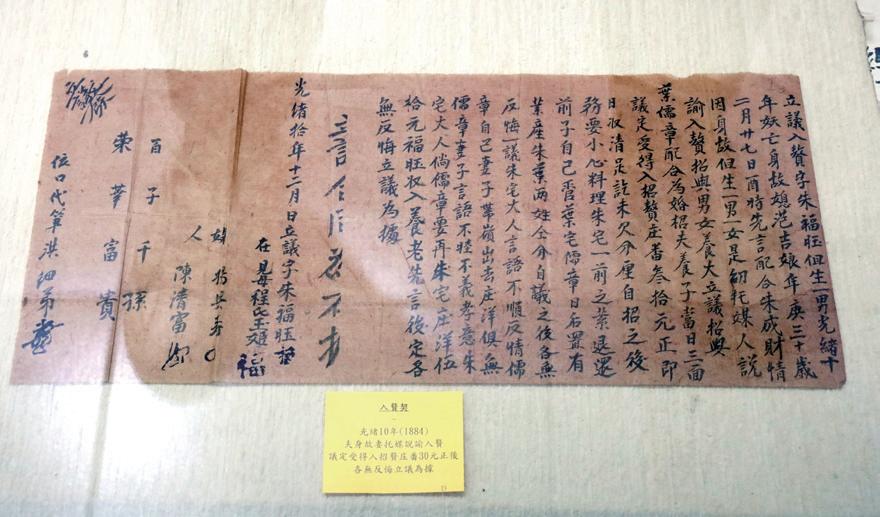 立議入贅字朱福旺但生一男光緒十
年妖亡身故媳范吉娘年庚三十歲
二月廿七日酉時先言配合朱成財情
因身故但生一男一女是幼托媒人說
諭入贅招與男女養大立議招與
葉儒章配合為婚招夫養子當日三面
議定受得入招贅庄番叁拾元正即
日收清足訖未欠分厘自招之後
務要小心料理朱宅一前之業退還
前子自己香葉宅儒章日后置有
業産朱葉两姓仝分自議之後各無
反悔一議朱宅大人言語不順反情儒
章自己妻子帶嶺出去庄洋俱無
儒章妻子言語不睦不義孝意朱
宅大人倘儒章要再朱宅庄洋伍
拾元福旺收入養老先言後定各
無反悔立議為據
光緒拾年十二月日立議字朱福旺
在見母程氏
人陳清富
百子千孫
榮華富貴
依口代筆洪細弟
入贅契
光緒10年(1884)
夫身故妻托媒說諭入贅
議定受得入招贅庄番30元正後
各無反悔立議為據